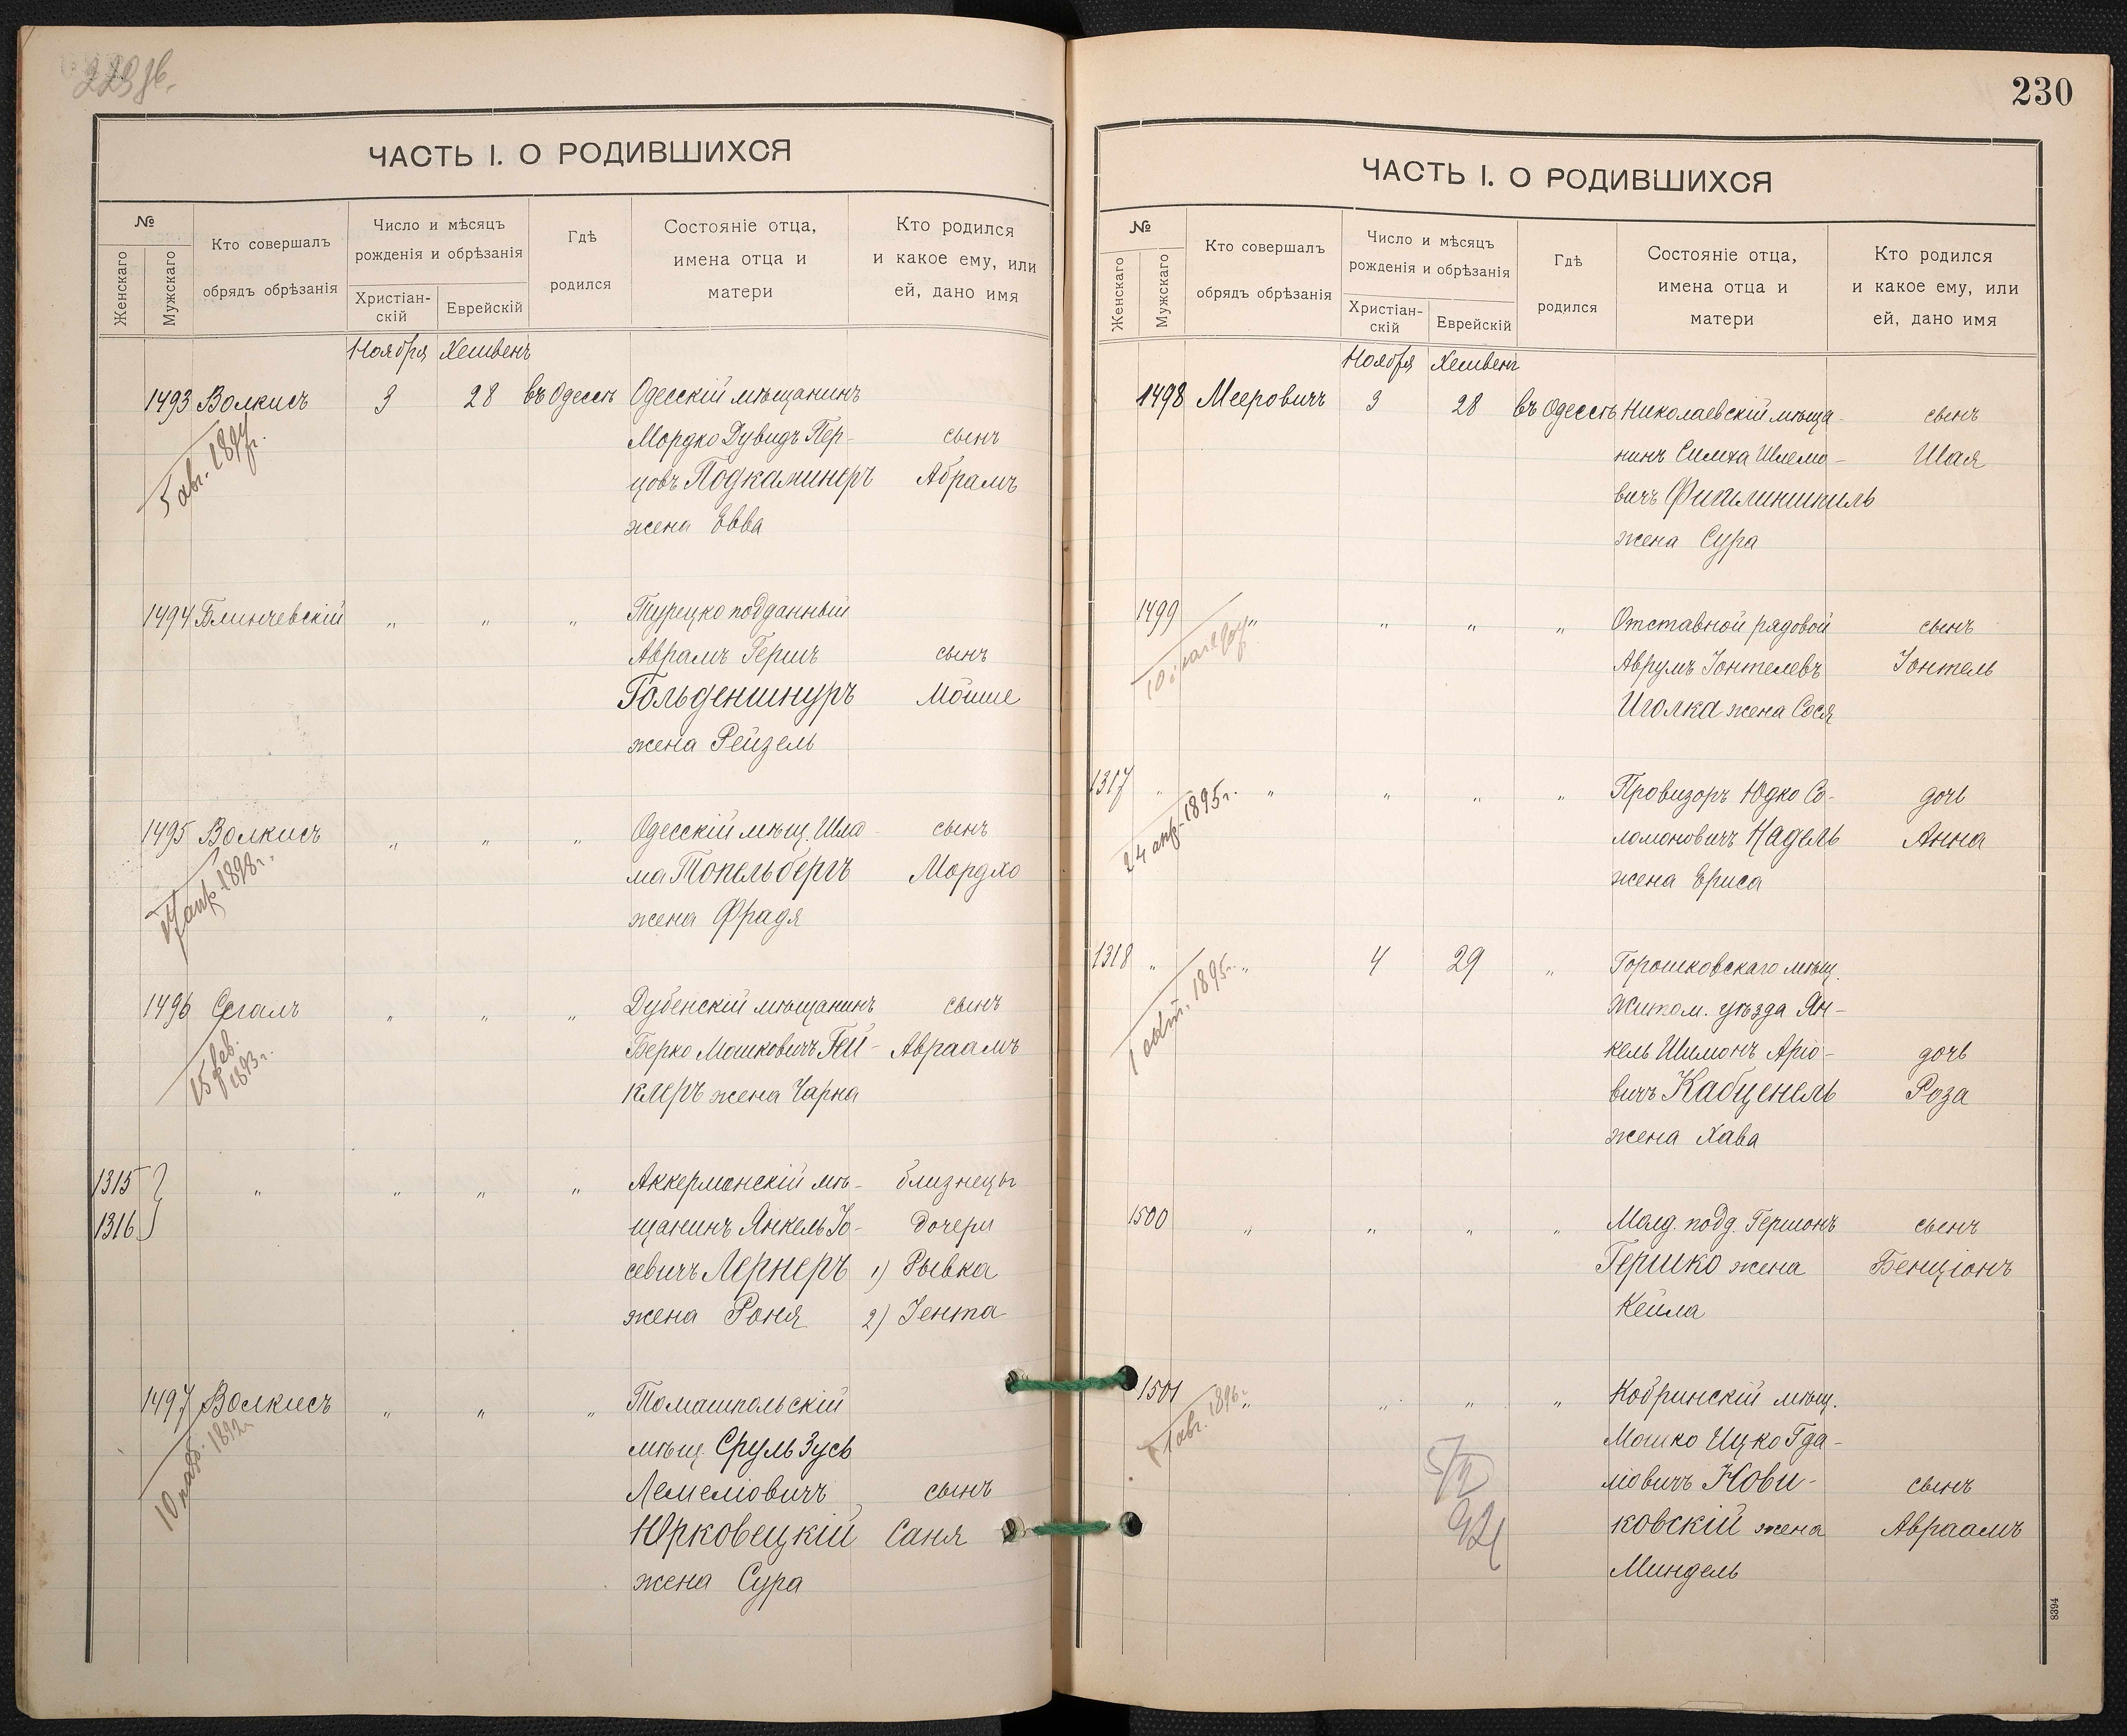 229 об.
ЧАСТЬ I. О РОДИВШИХСЯ
№
Женскаго
Мужскаго
Кто совершалъ
обрядъ обрѣзанія
Число и мѣсяцъ
рожденія и обрѣзанія
Христіан-
скій
Еврейскій
Гдѣ
родился
Состояніе отца,
имена отца и
матери
Кто родился
и какое ему, или
ей, дано имя
Ноября Хешвенъ
1493 Волкисъ 3 28 въ Одессѣ Одесскій мѣщанинъ
Мордко Дувидъ Гер- сынъ
цовъ Подкаминеръ Абрамъ
жена Евва
5 авг. 1897 г.
1494 Блинчевскій " " " Турецко подданный
Аврамъ Гершъ сынъ
Гольденшнуръ Мойше
жена Рейзель
1495 Волкисъ " " " Одесскій мѣщ. Шлё- сынъ
ма Топельбергъ Мордхо
жена Фрадя
апр. 1898 г.
1496 Сегалъ " " " Дубенскій мѣщанинъ сынъ
Берко Мошковичъ Гей- Авраамъ
клеръ жена Чарна
15 фев.
1893 г.
1315 " " " " Аккерманскій мѣ- близнецы
1316 щанинъ Янкель Іо- дочери
севичъ Лернеръ 1) Рывка
жена Роня 2) Іента
1497 Волкисъ " " " Томашпольскій
мѣщ. Сруль Зусь
Лемеліовичъ сынъ
Юрковецкій Саня
жена Сура
10 нояб. 1892 г.
230
ЧАСТЬ I. О РОДИВШИХСЯ
№
Женскаго
Мужскаго
Кто совершалъ
обрядъ обрѣзанія
Число и мѣсяцъ
рожденія и обрѣзанія
Христіан-
скій
Еврейскій
Гдѣ
родился
Состояніе отца,
имена отца и
матери
Кто родился
и какое ему, или
ей, дано имя
Ноября Хешвенъ
1498 Мееровичъ 3 28 въ Одессѣ Николаевскій мѣща- сынъ
нинъ Симха Шлемо- Шая
вичъ
жена Сура
1499 " " " " Отставной рядовой сынъ
Аврумъ Іонтелевъ Іонтель
Иголка жена Сося
1317 " " " " " Провизоръ Юдко Со- дочь
ломоновичъ Надель Анна
жена Ериса
24 апр. 1895 г.
1318 " " 4 29 " Горошковскаго мѣщ.
Житом. уѣзда Ян-
кель Шимонъ Аріо- дочь
вичъ Кабценель Роза
жена Хава
1 1895 г.
1500 " " " " Молд. подд. Гершонъ сынъ
Гершко жена Бенціонъ
Кейла
1501 " " " " Кобринскій мѣщ.
Мошко Ицко Гда-
ліовичъ Нови- сынъ
ковскій жена Авраамъ
Миндель
1 авг. 1896 г.
8394